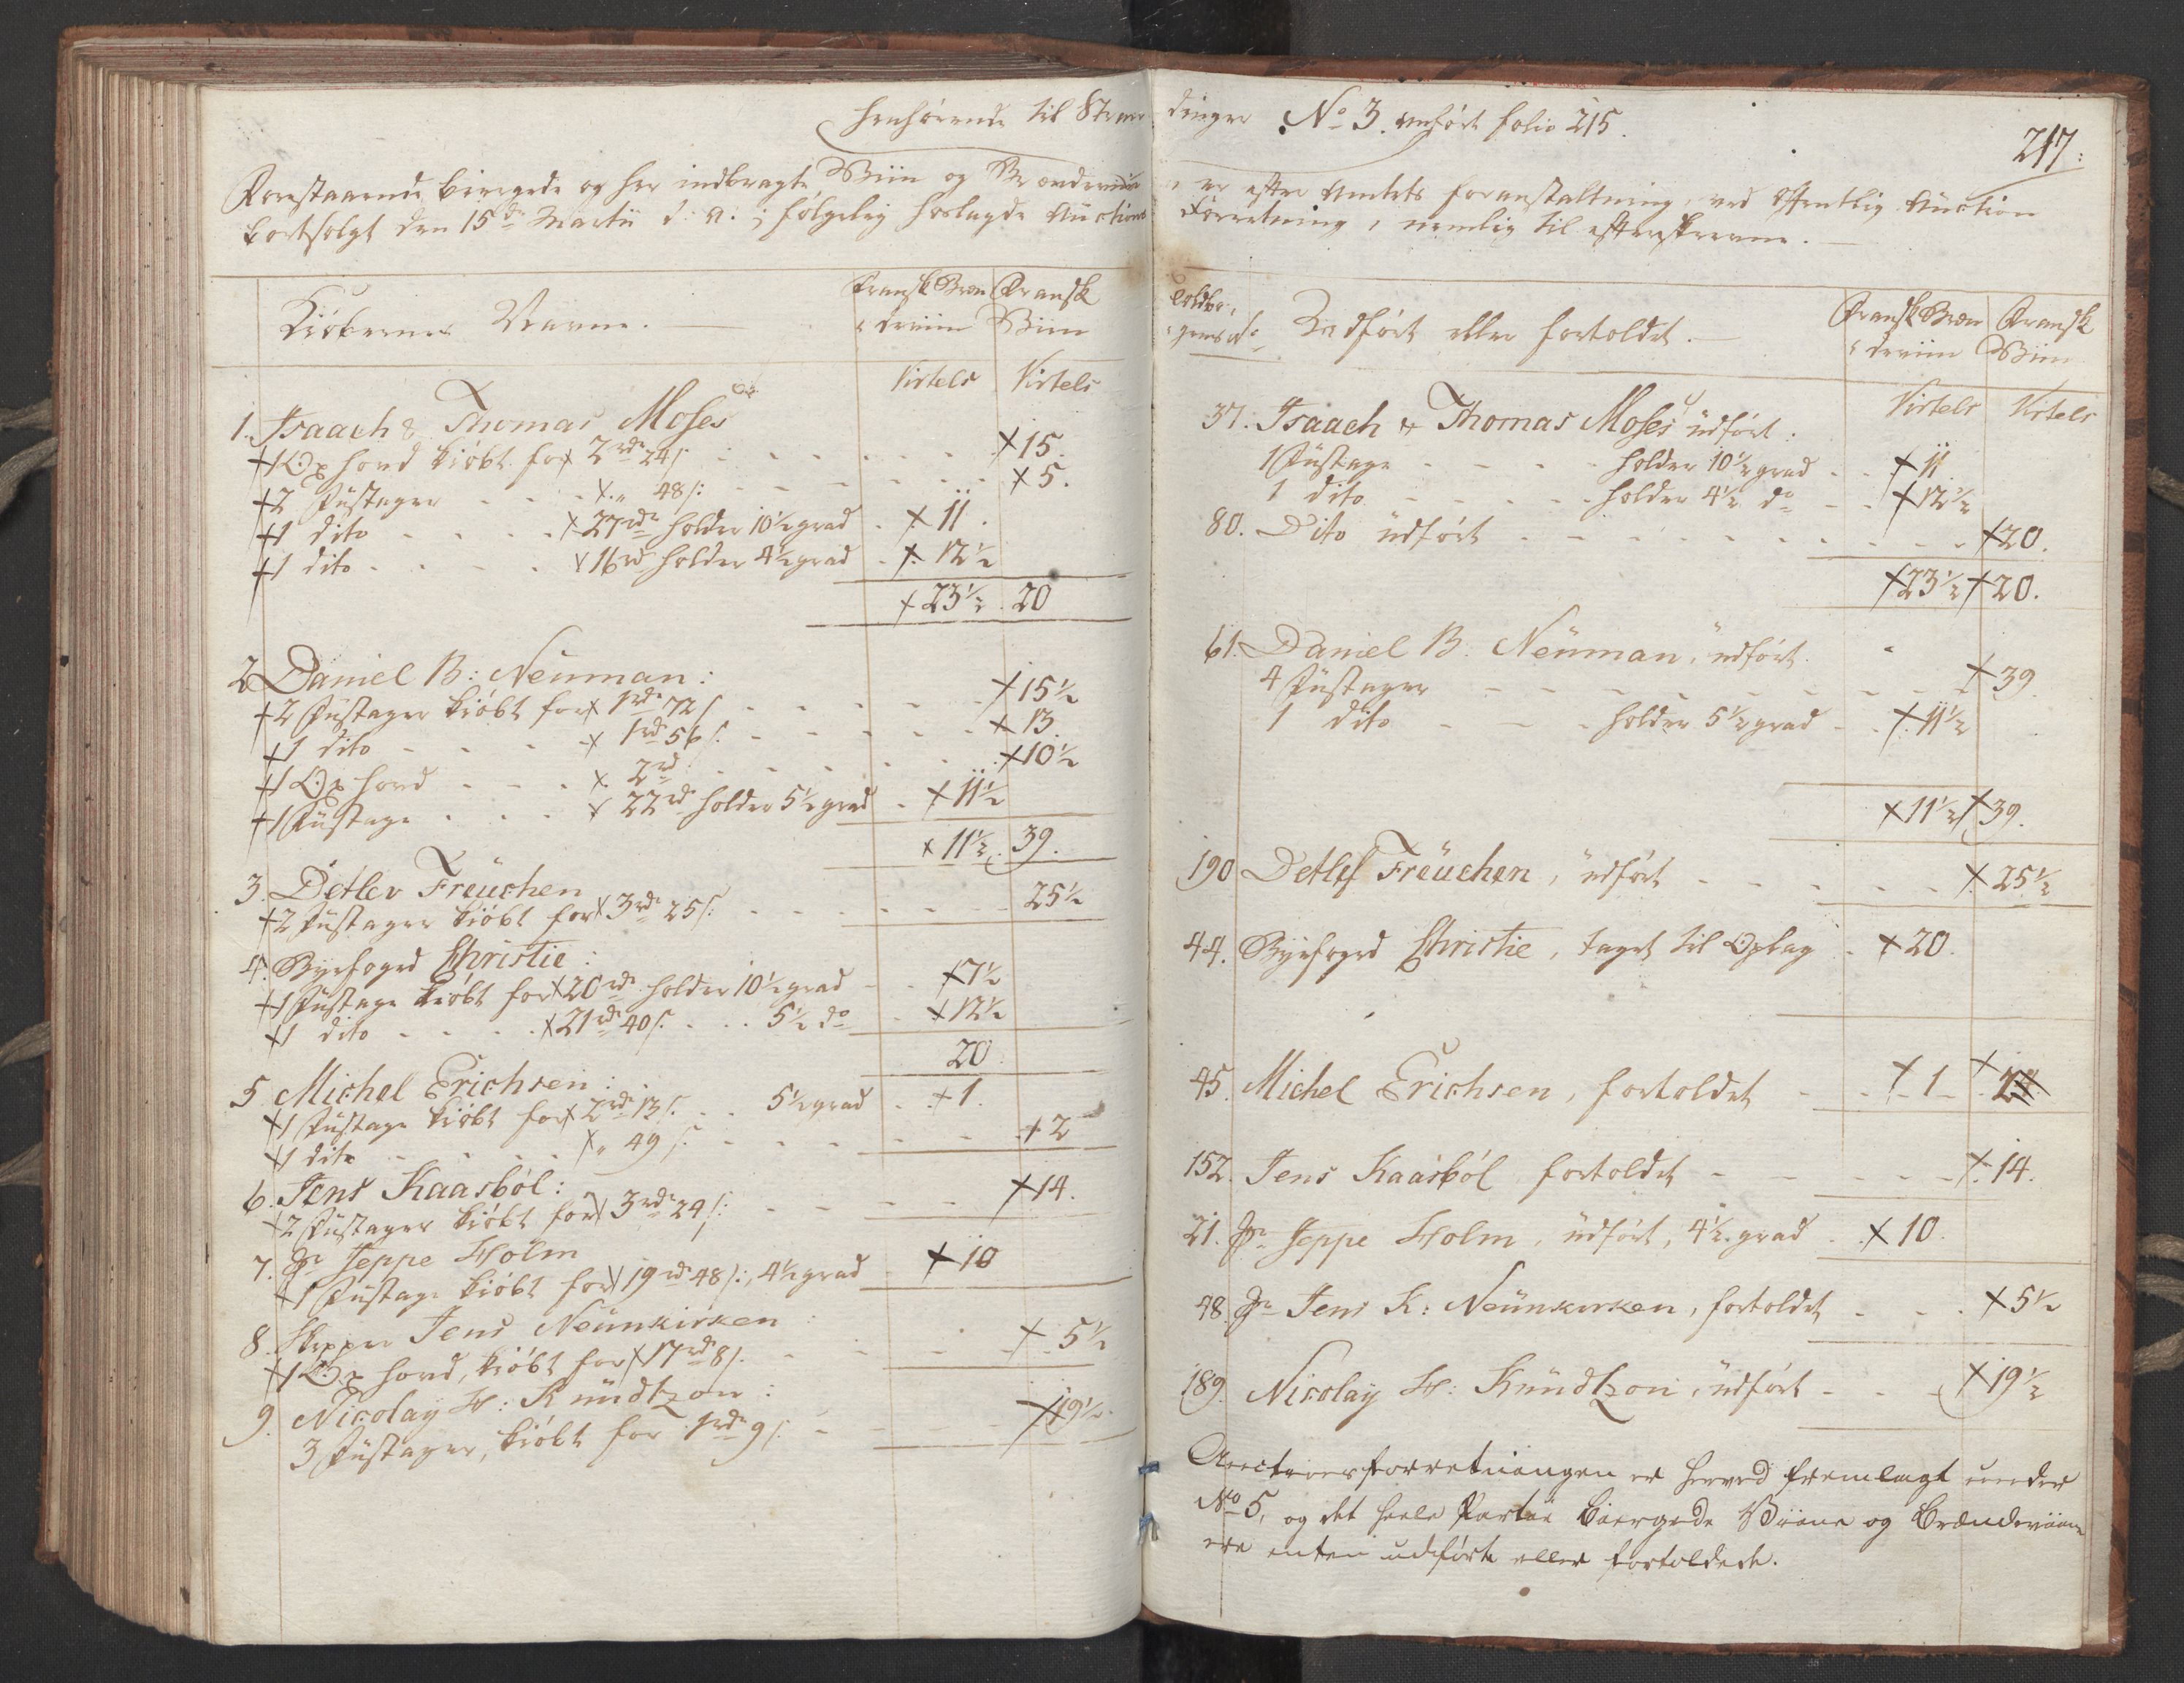 henhörende til Strandinger No 3. anfört folio 215.
217:
Forestaaende biergede og her indbragte Viin og Brændeviin, er efter Amtets foranstaltning, ved offentlig Auction
bortsolgt den 15de Martii d: A: i fölgelig herlagde Auctions Forretning, nemlig til efterskrevne.
Kiöbernes Navne.
Fransk Brændeviin
Fransk Viin
Virtels
Virtels
1. Isaach & Thomas Moses
1 Oxhoved kiöbt for 2 rd 24 s: 15.
2 Fustager " 48 s: 5.
1 dito 27 rd holder 10½ grad 11.
1 dito 16 rd holder 4½ grad 12½
23½ 20
2 Daniel B: Neuman:
2 Fustager kiöbt for 1 rd 72 s 15½
1 dito 1 rd 56 s: 13.
1 Oxhoved 2 rd 10½
1 Fustage 22 rd holder 5½ grad 11½
11½ 39.
3. Detlev Freuchen
2 Fustager kiöbt for 3 rd 25 s: 25½
4. Byefoged Christie:
1 Fustage kiöbt for 20 rd holder 10½ grad 7½
1 dito 21 rd 40 s. 5½ do 12½
20
5 Michel Erichsen:
1 Fustage kiöbt for 2 rd 13 s. 5½ grad 1.
1 dito " 49 s: 2
6. Jens Kaasböl:
2 Fustager kiöbt for 3 rd 24 s: 14.
7. Hr Jeppe Holm
1 Fustage kiöbt for 19 rd 48 s:, 4½ grad 10
8. Skipper Jens Neunkirken:
1 Oxhoved, kiöbt for 17 rd 8 s. 5½
9. Nicolay H: Knudtzon:
3 Fustager, kiöbt for 1 rd 9 s: 19½
Udfört eller fortoldet.
Fransk Brændeviin
Fransk Viin
Virtels
Virtels
37. Isaach & Thomas Moses udfört:
1 Fustage holder 10½ grad 11
1 dito holder 4½ do 12½
80. Dito udfört 20.
23½ 20.
61. Daniel B. Neuman, udfört.
4 Fustager 39
1 dito holder 5½ grad 11½
11½ 39.
190 Detlef Freuchen, udfört 25½
44. Byefoged Christie, taget til Oplag 20.
45. Michel Erichsen, fortoldet 1
152. Jens Kaasböl fortoldet 14.
21. Hr Jeppe Holm, udfört, 4½ grad 10.
48. Hr Jens K: Neunkirken, fortoldet 5½
189. Nicolay H: Knudtzon, udfört 19½
Auctionsforretningen er herved fremlagt under
No 5, og det heele Partie biergede Viine og Brændeviine
ere enten udförte eller fortoldede.